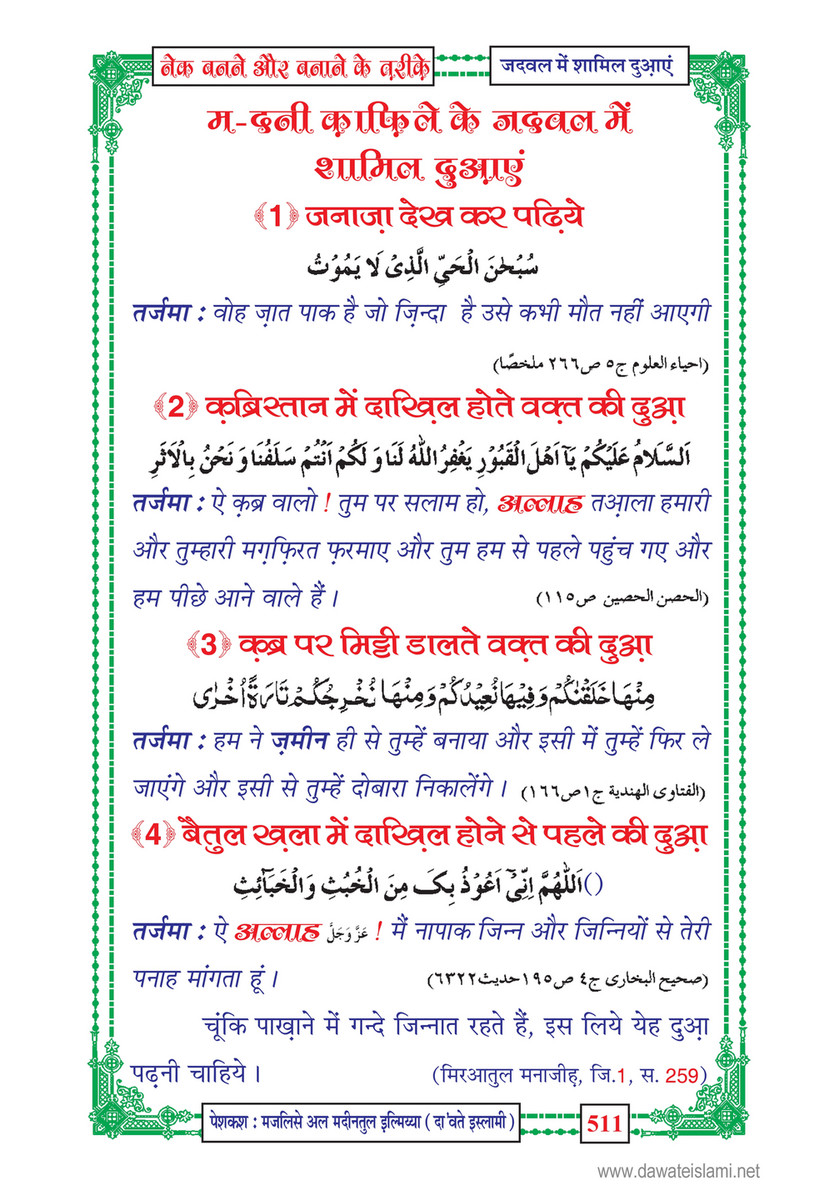 नेक बनने और बनाने के त़रीके़
जदवल में शामिल दुआ़एं
म-दनी क़ाफ़िले के जदवल में
शामिल दुआ़एं
﴾1﴿ जनाज़ा देख कर पढ़िये
سُبْحٰنَ الْحَيِّ الَّذِیْ لَا یَمُوْتُ
तर्जमा : वोह ज़ात पाक है जो ज़िन्दा है उसे कभी मौत नहीं आएगी
(احیاء العلوم ج٥ ص٢٦٦ ملخصًا)
﴾2﴿ क़ब्रिस्तान में दाख़िल होते वक़्त की दुआ़
اَلسَّلَامُ عَلَیْکُمْ یَآ اَھْلَ الْقُبُوْرِ یَغْفِرُ اللّٰهُ لَنَا وَ لَکُمْ اَنْتُمْ سَلَفُنَا وَ نَحْنُ بِالْاَثَرِ
तर्जमा : ऐ क़ब्र वालो ! तुम पर सलाम हो, अल्लाह तआ़ला हमारी
और तुम्हारी मग़्फ़िरत फ़रमाए और तुम हम से पहले पहुंच गए और
हम पीछे आने वाले हैं । (الحصن الحصین ص١١٥)
﴾3﴿ क़ब्र पर मिट्टी डालते वक़्त की दुआ़
مِنْهَا خَلَقْنٰكُمْ وَ فِیْهَا نُعِیْدُكُمْ وَ مِنْهَا نُخْرِجُكُمْ تَارَةً اُخْرٰى
तर्जमा : हम ने ज़मीन ही से तुम्हें बनाया और इसी में तुम्हें फिर ले
जाएंगे और इसी से तुम्हें दोबारा निकालेंगे । (الفتاوی الهندیة ج١ص١٦٦)
﴾4﴿ बैतुल ख़ला में दाख़िल होने से पहले की दुआ़
() اَللّٰهُمَّ اِنِّیْۤ اَعُوْذُ بِکَ مِنَ الْخُبُثِ وَالْخَبَآئِثِ
तर्जमा : ऐ अल्लाह عَزَّ وَجَلَّ ! मैं नापाक जिन्न और जिन्नियों से तेरी
पनाह मांगता हूं । (صحیح البخاری ج٤ ص١٩٥حدیث٦٣٢٢)
चूंकि पाख़ाने में गन्दे जिन्नात रहते हैं, इस लिये येह दुआ़
पढ़नी चाहिये । (मिरआतुल मनाजीह़, जि.1, स. 259)
पेशकश : मजलिसे अल मदीनतुल इ़ल्मिय्या ( दा'वते इस्लामी )
511
www.dawateislami.net